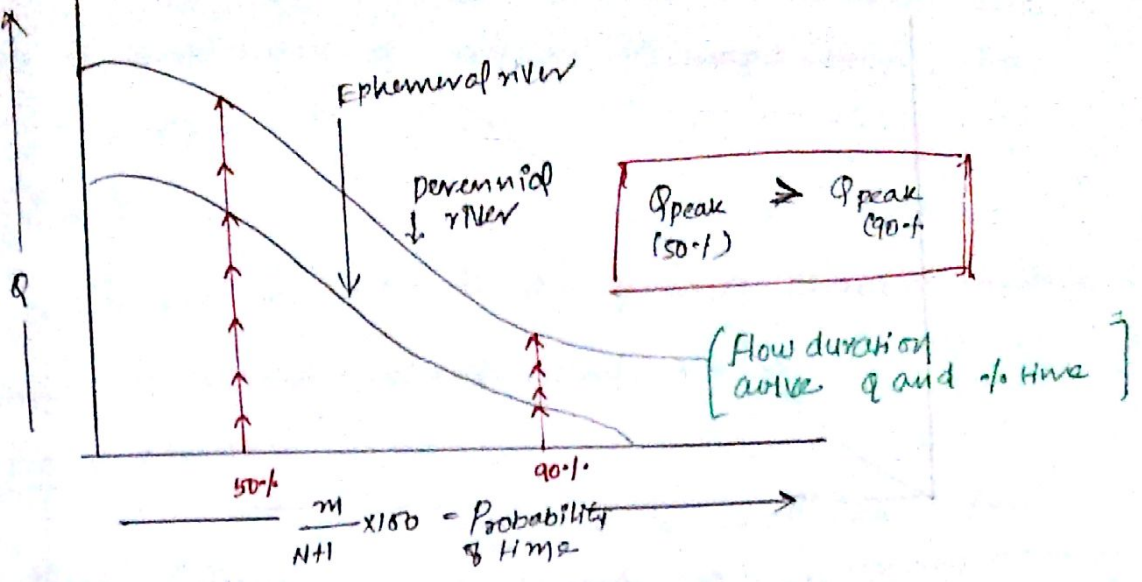 Ephemeral river
Perennial
river
Qpeak > Qpeak
(50%) (90%
Q
[Flow duration
curve Q and % time]
50%
90%
m/N+1 ×100 = Probability
of time